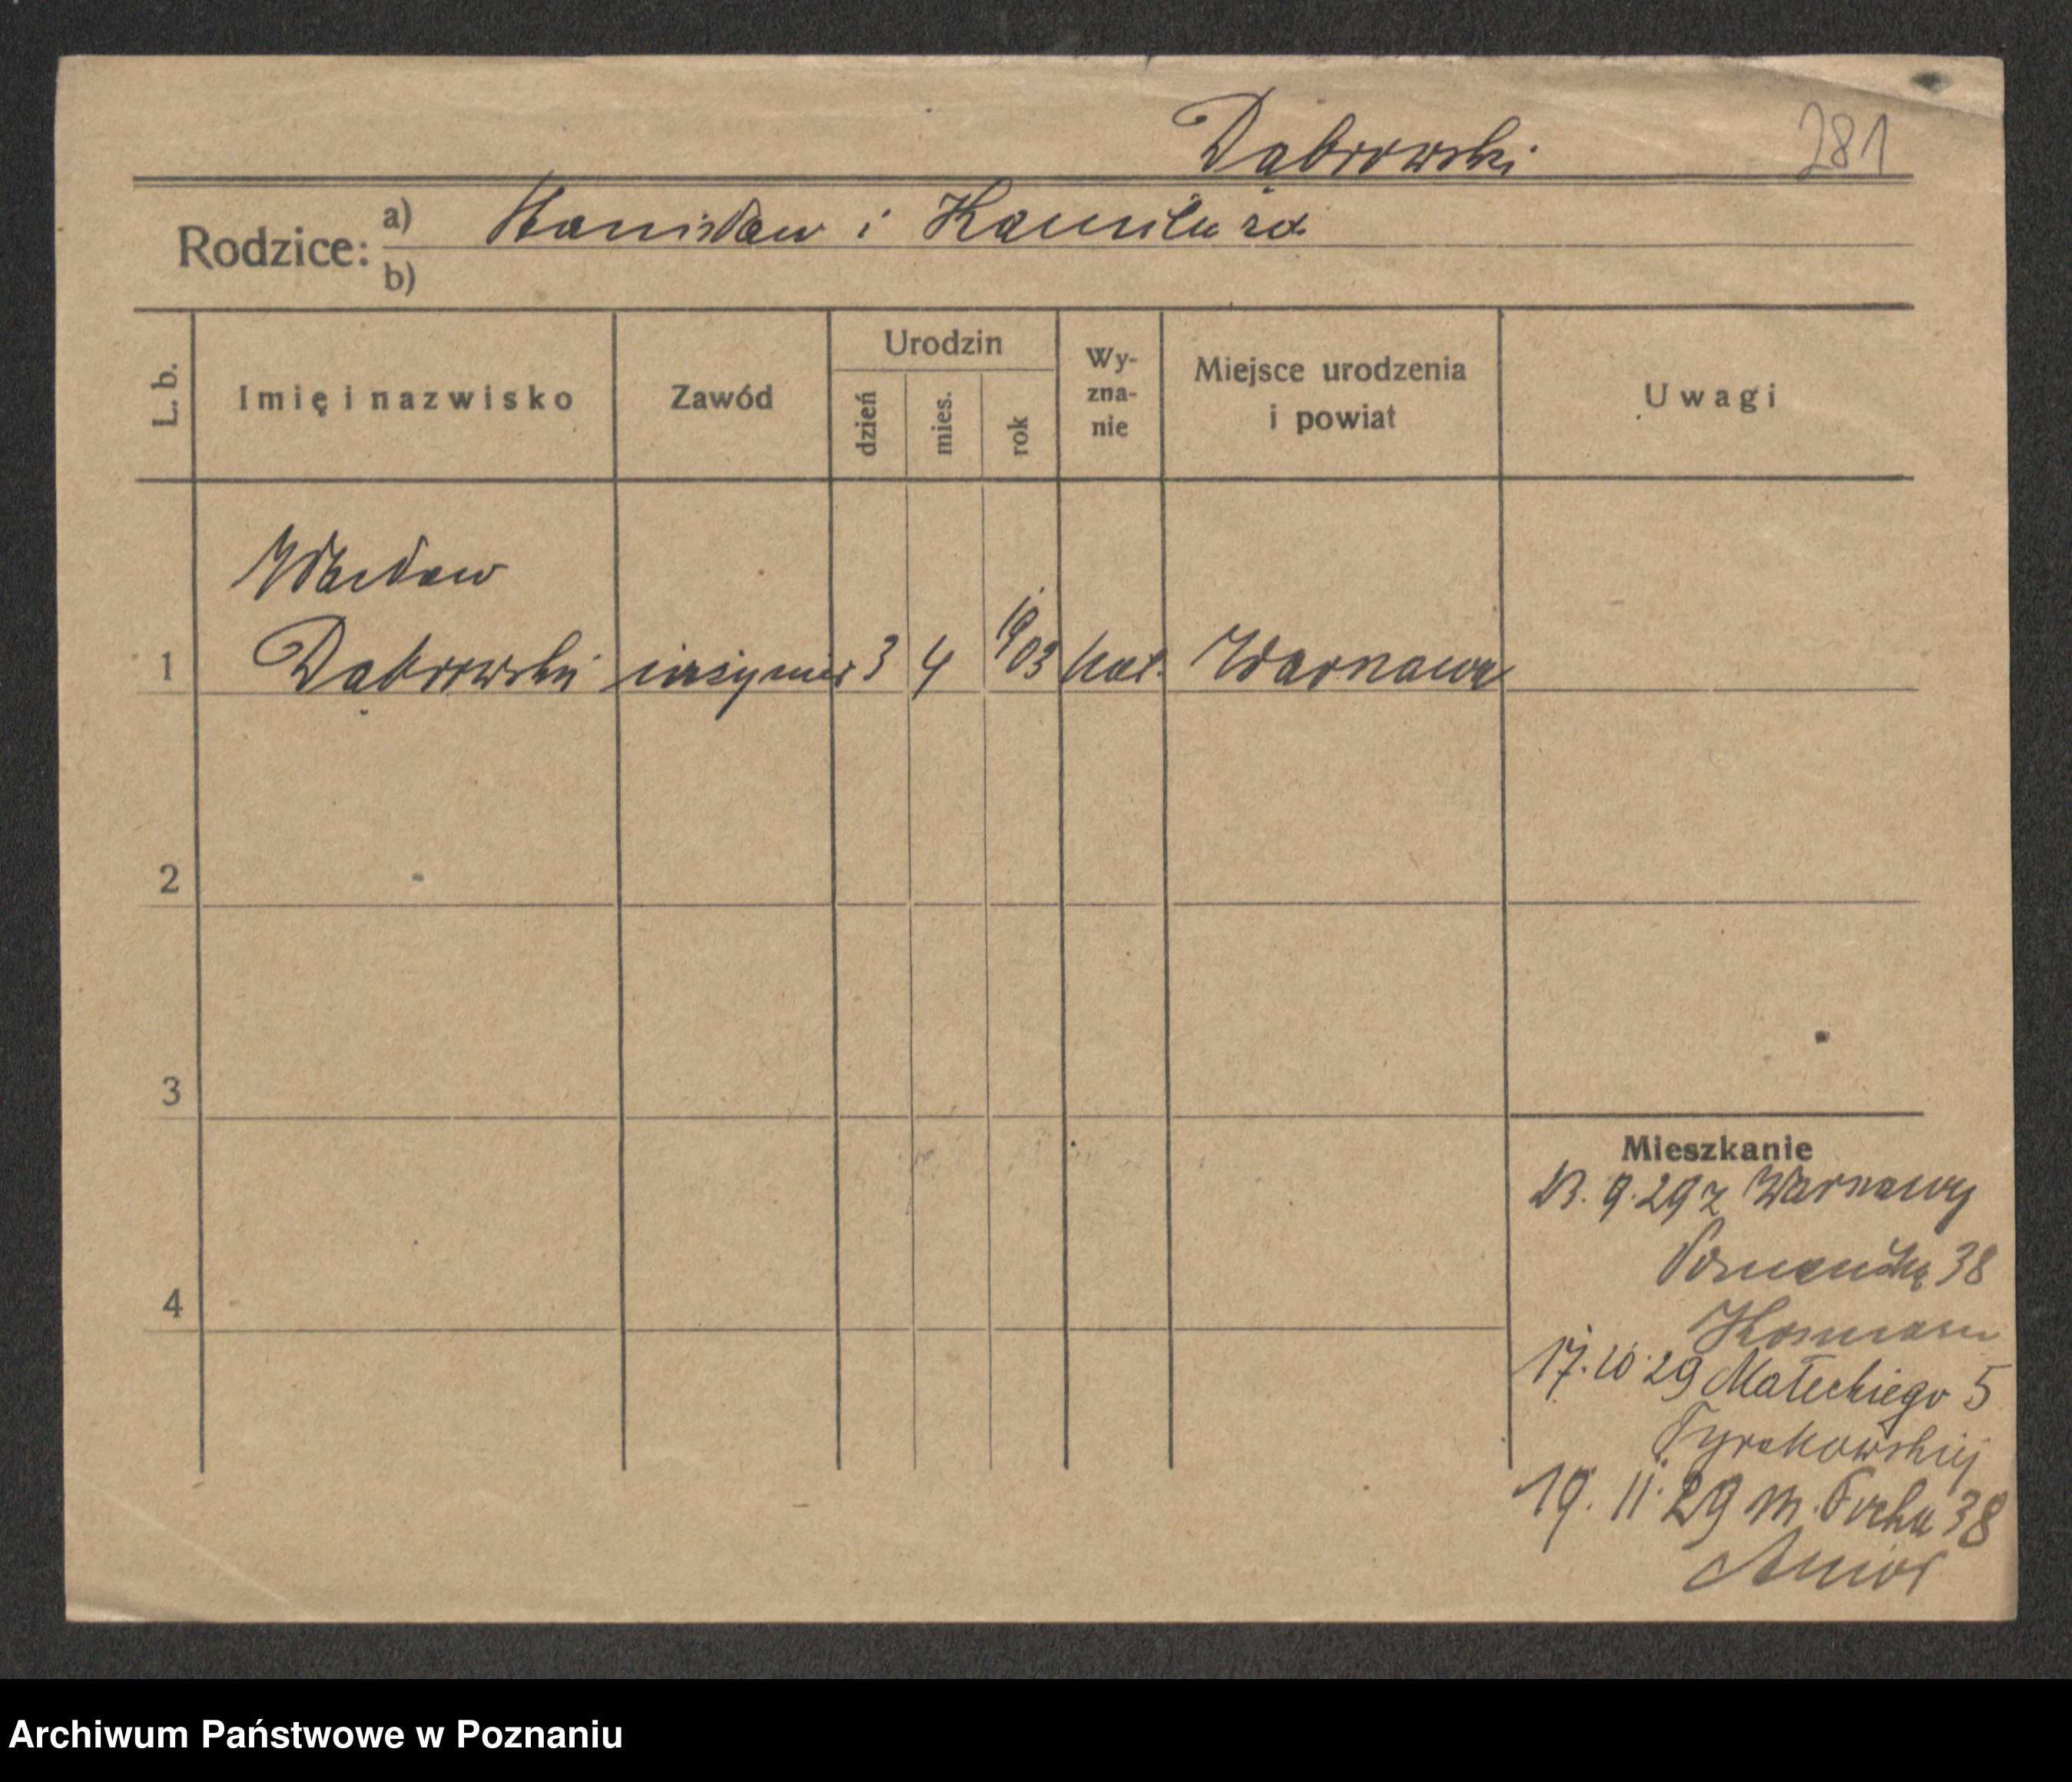 Dąbrowski 281
Rodzice: a) Stanisław i Kamila
b)
L. b. Imię i nazwisko Zawód Urodzin dzień mies. rok Wy-zna-nie Miejsce urodzenia i powiat Uwagi
Wacław
1 Dąbrowski inżynier 3 4 1903 kat. Warszawa
2
3
4
Mieszkanie
9. 29 z Warszawy
38
17. 10. 29 Małeckiego 5
Tyrakowskiej
19. 11. 29 M. Focha 38
Anioł
Archiwum Państwowe w Poznaniu